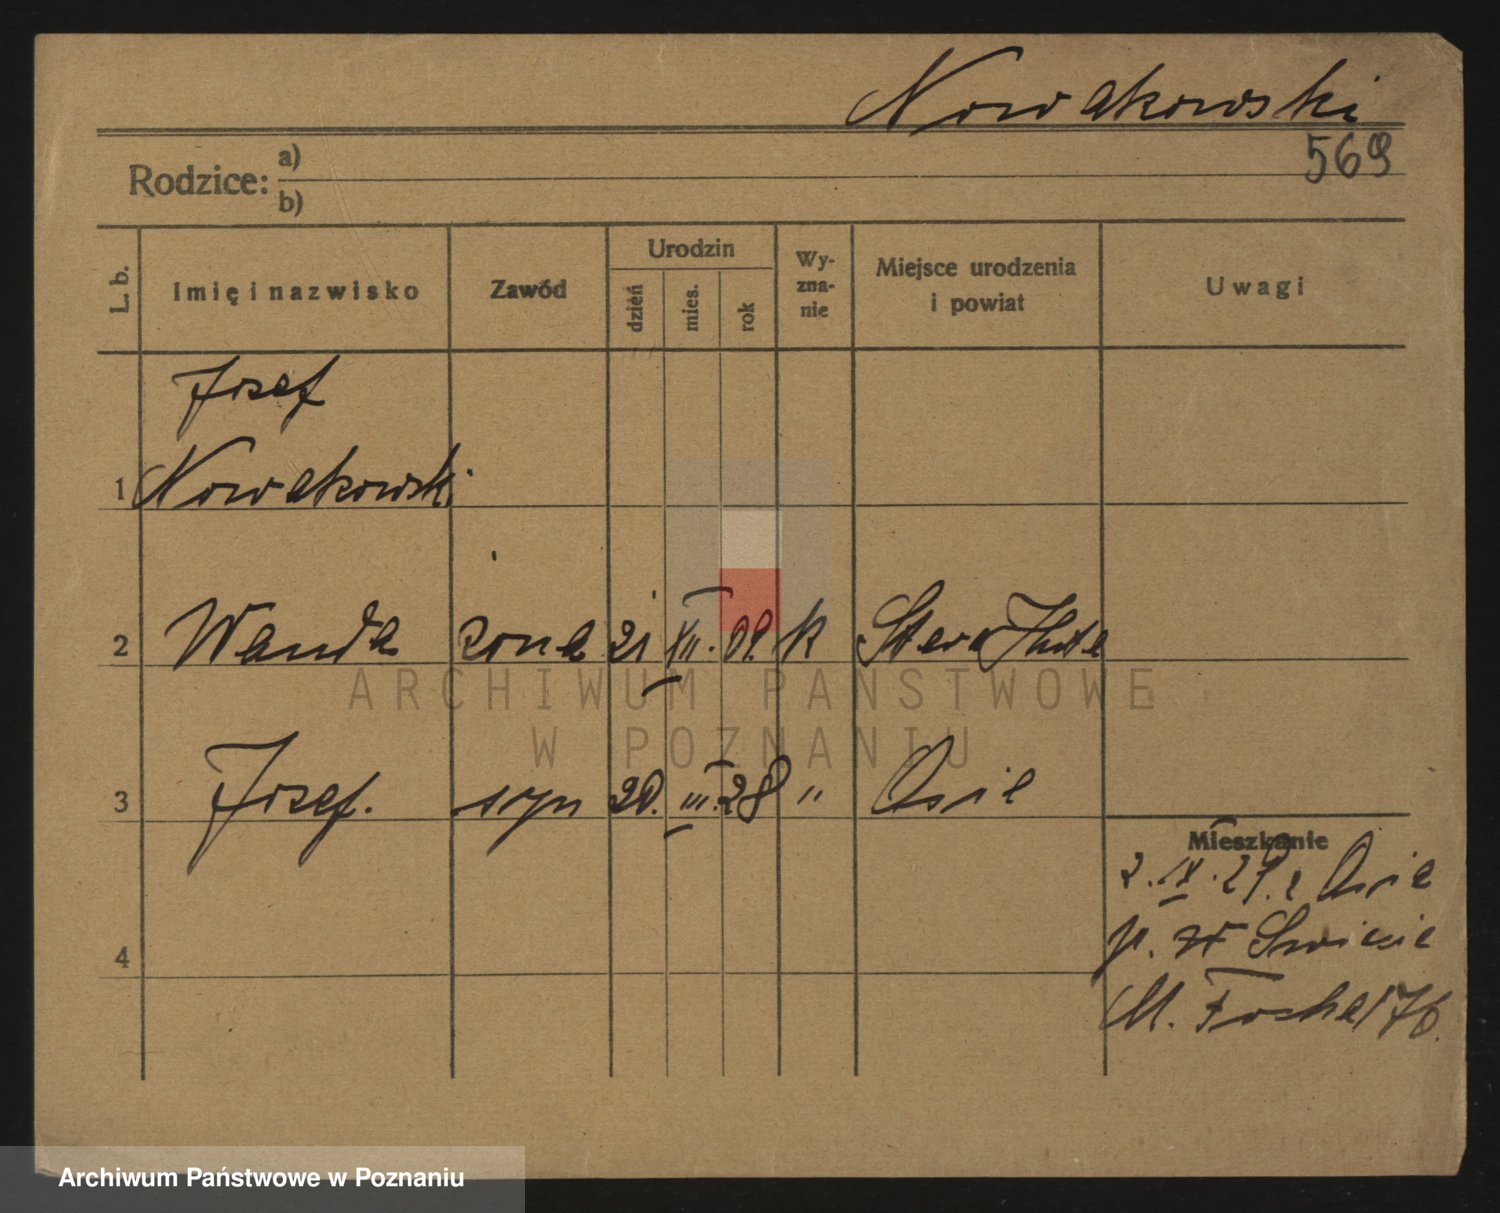 Nowakowski
569
Rodzice: a)
b)
L. b. Imię i nazwisko Zawód Urodzin dzień mies. rok Wyznanie Miejsce urodzenia i powiat Uwagi
Józef
1 Nowakowski
2 Wanda żona 21 XII. 09. k Stara Huta
3 Józef. syn 20. III. 28 " Osie
Mieszkanie
2. IX. 29. z Osie
4 p. Świecie
M. Focha 176.
ARCHIWUM PAŃSTWOWE
W POZNANIU
Archiwum Państwowe w Poznaniu